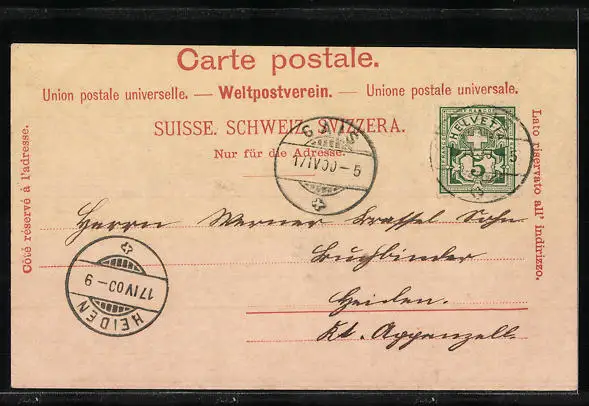 Carte postale.
Union postale universelle. — Weltpostverein. — Unione postale universale.
SUISSE. SCHWEIZ. SVIZZERA.
Nur für die Adresse.
Côté réservé à l'adresse.
Lato riservato all' indirizzo.
HELVETIA
5
GAIS
17 IV 00 – 5
Herrn Werner Sohn
Buchbinder
Heiden.
Kt. Appenzell.
17 IV 00 – 9
HEIDEN